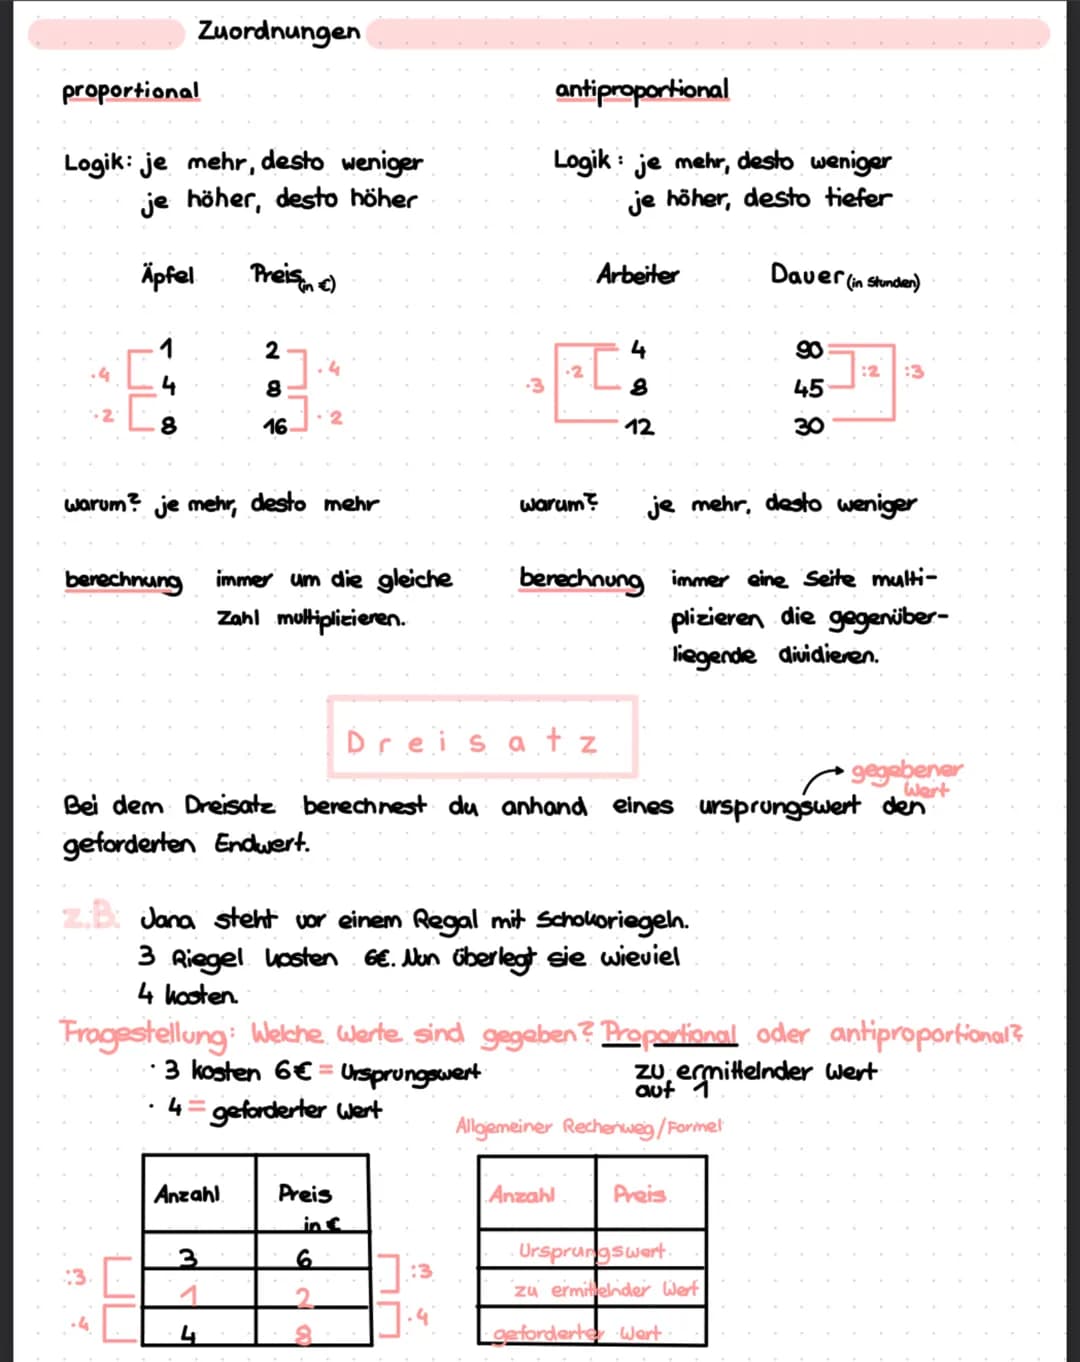 Zuordnungen
proportional
Logik: je mehr, desto weniger
je höher, desto höher
Äpfel Preis (in €)
1 2
·4 ·4
4 8
·2 ·2
8 16
warum? je mehr, desto mehr
berechnung immer um die gleiche
Zahl multiplizieren.
antiproportional
Logik: je mehr, desto weniger
je höher, desto tiefer
Arbeiter Dauer (in Stunden)
4 90
·3 ·2 :2 :3
8 45
12 30
warum? je mehr, desto weniger
berechnung immer eine Seite multi-
plizieren die gegenüber-
liegende dividieren.
Dreisatz
gegebener
Wert
Bei dem Dreisatz berechnest du anhand eines ursprungswert den
geforderten Endwert.
z.B. Jana steht vor einem Regal mit Schokoriegeln.
3 Riegel kosten 6€. Nun überlegt sie wieviel
4 kosten.
Fragestellung: Welche Werte sind gegeben? Proportional oder antiproportional?
· 3 kosten 6€ = Ursprungswert
· 4 = geforderter Wert
zu ermittelnder Wert
auf 1
Allgemeiner Rechenweg/Formel
Anzahl Preis
in €
3 6
:3 :3
1 2
·4 ·4
4 8
Anzahl Preis
Ursprungswert
zu ermittelnder Wert
geforderter Wert